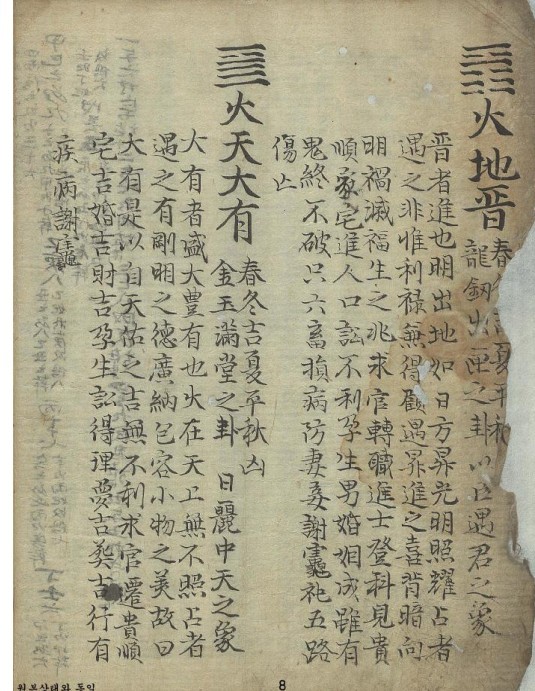 ䷢火地晋
龍釼出匣之卦 以臣遇君之象
晋者進也明出地如日方昇光明照耀占者
遇之非惟利禄無得顧遇昇進之喜背暗向
明禍滅福生之兆求官轉職進士登科見貴
順家宅進人口訟不利孕生男婚姻成雖有
鬼終不破只六畜損病防妻妾謝竈祀五路
傷亡
䷍火天大有
春冬吉夏平秋凶
金玉滿堂之卦 日麗中天之象
大有者盛大豊有也火在天上無不照占者
遇之有剛明之德廣納包容小物之美故曰
大有是以自天佑之吉無不利求官遷貴順
宅吉婚吉財吉孕生訟得理夢吉葬吉行有
疾病謝竈
8